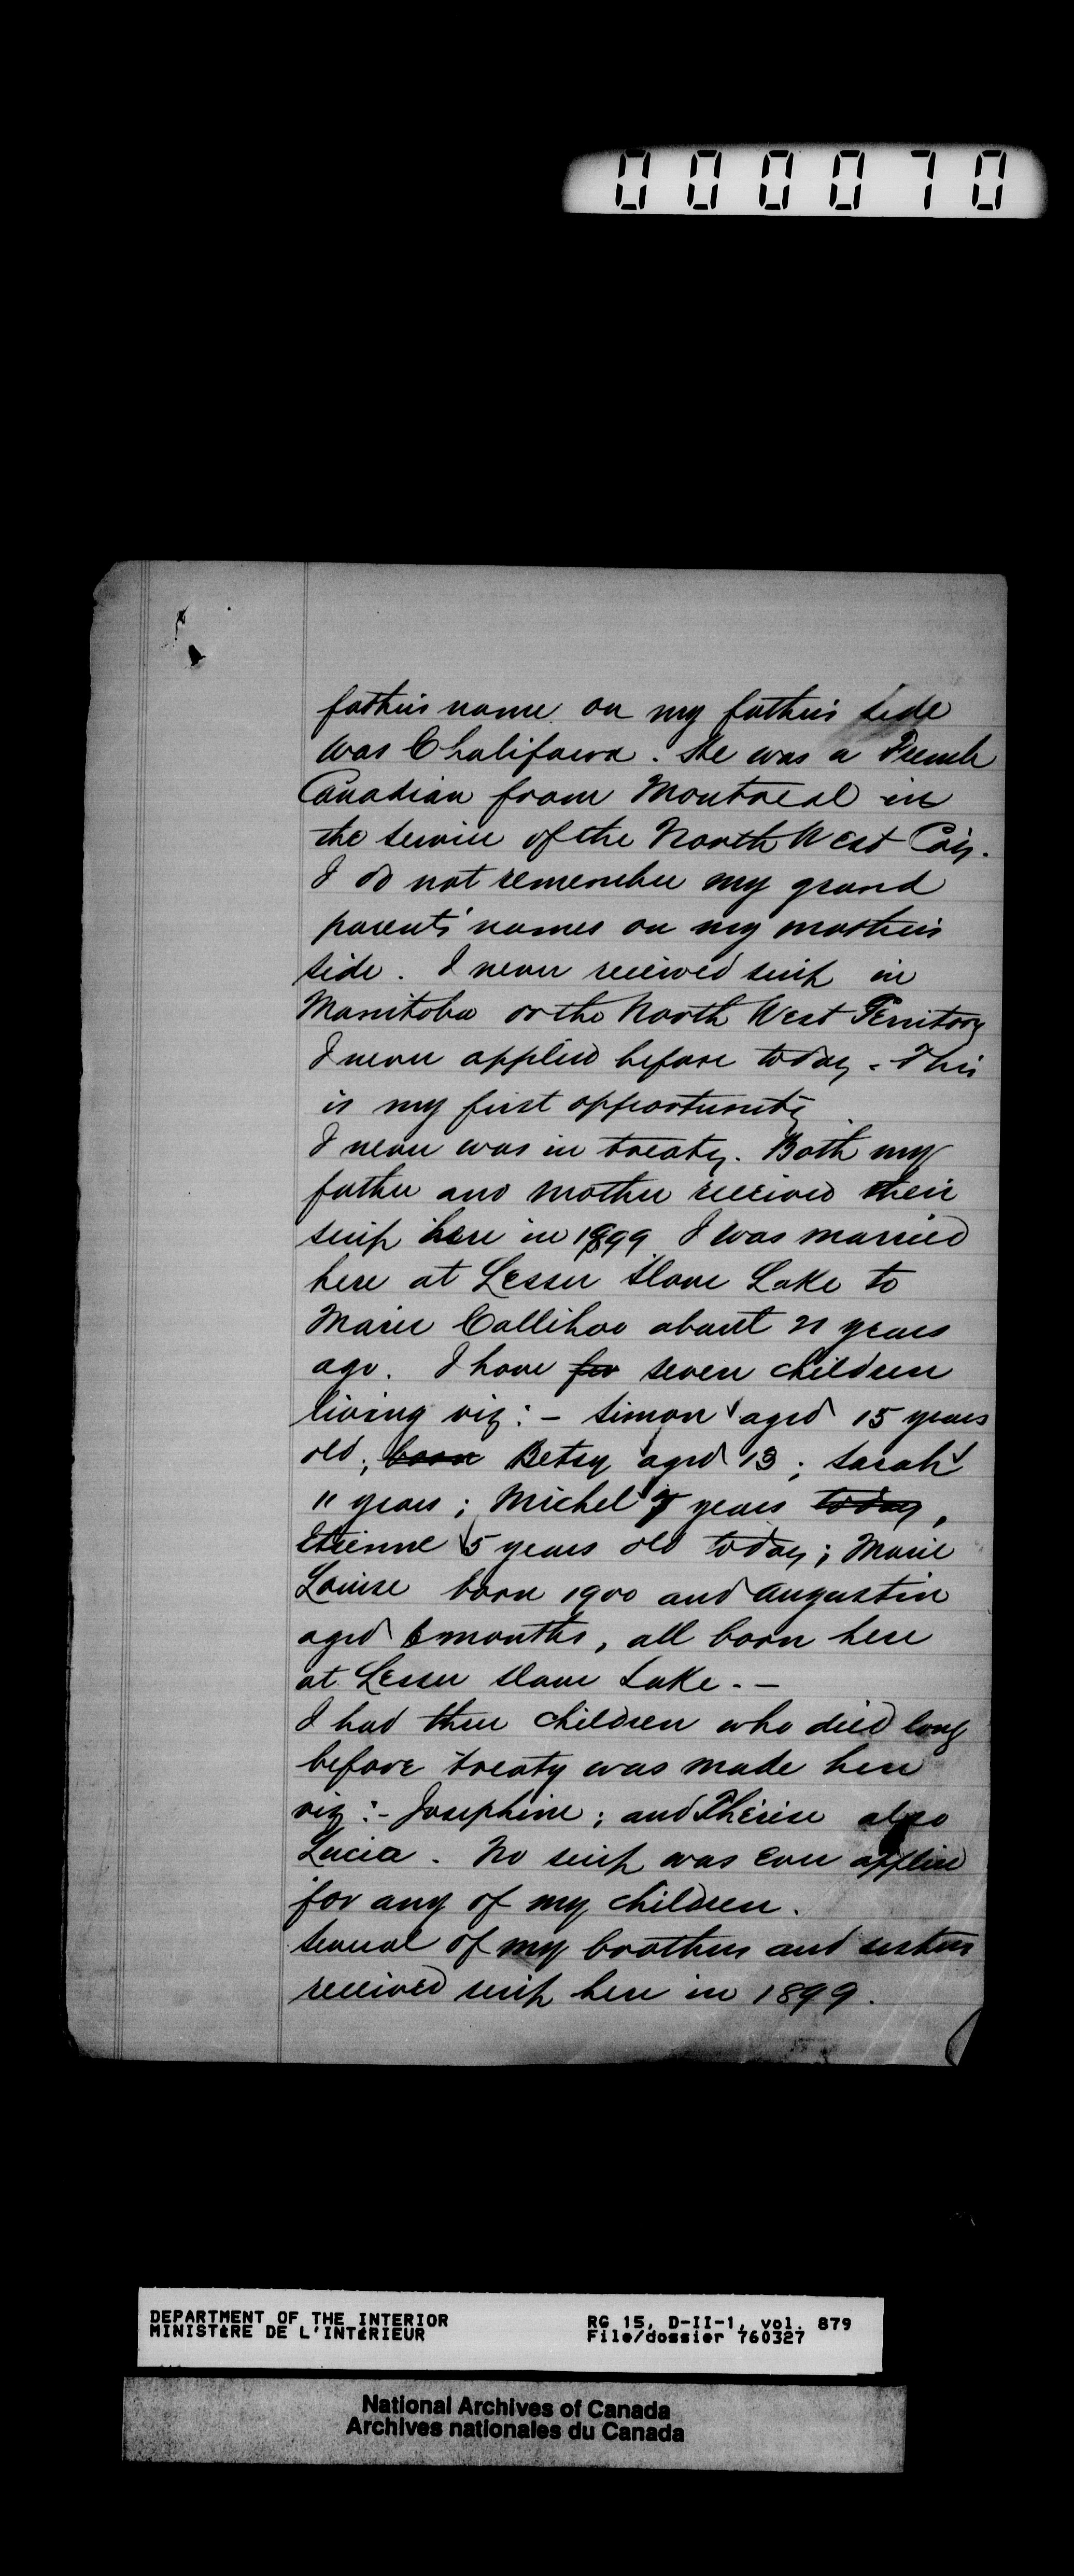 000070
fathers name on my fathers side
was Chalifoux. He was a French
Canadian from Montreal in
the service of the North West Coy.
I do not remember my grand
parents' names on my mothers
side. I never received scrip in
Manitoba or the North West Territory
I never applied before today. This
is my first opportunity
I never was in treaty. Both my
father and mother received their
scrip here in 1899 I was married
here at Lesser Slave Lake to
Marie Callihoo about 21 years
ago. I have for seven children
living viz:- Simon aged 15 years
old; born Betsy aged 13; Sarah
11 years; Michel 7 years today,
Etienne 5 years old today; Marie
Louise born 1900 and Augustin
aged 6 months, all born here
at Lesser Slave Lake.-
I had three children who died long
before treaty was made here
viz:- Josephine; and Thérèse also
Lucia. No scrip was ever applied
for any of my children.
Several of my brothers and sisters
received scrip here in 1899.
DEPARTMENT OF THE INTERIOR
MINISTÈRE DE L'INTÉRIEUR
RG 15, D-II-1, vol. 879
File/dossier 760327
National Archives of Canada
Archives nationales du Canada